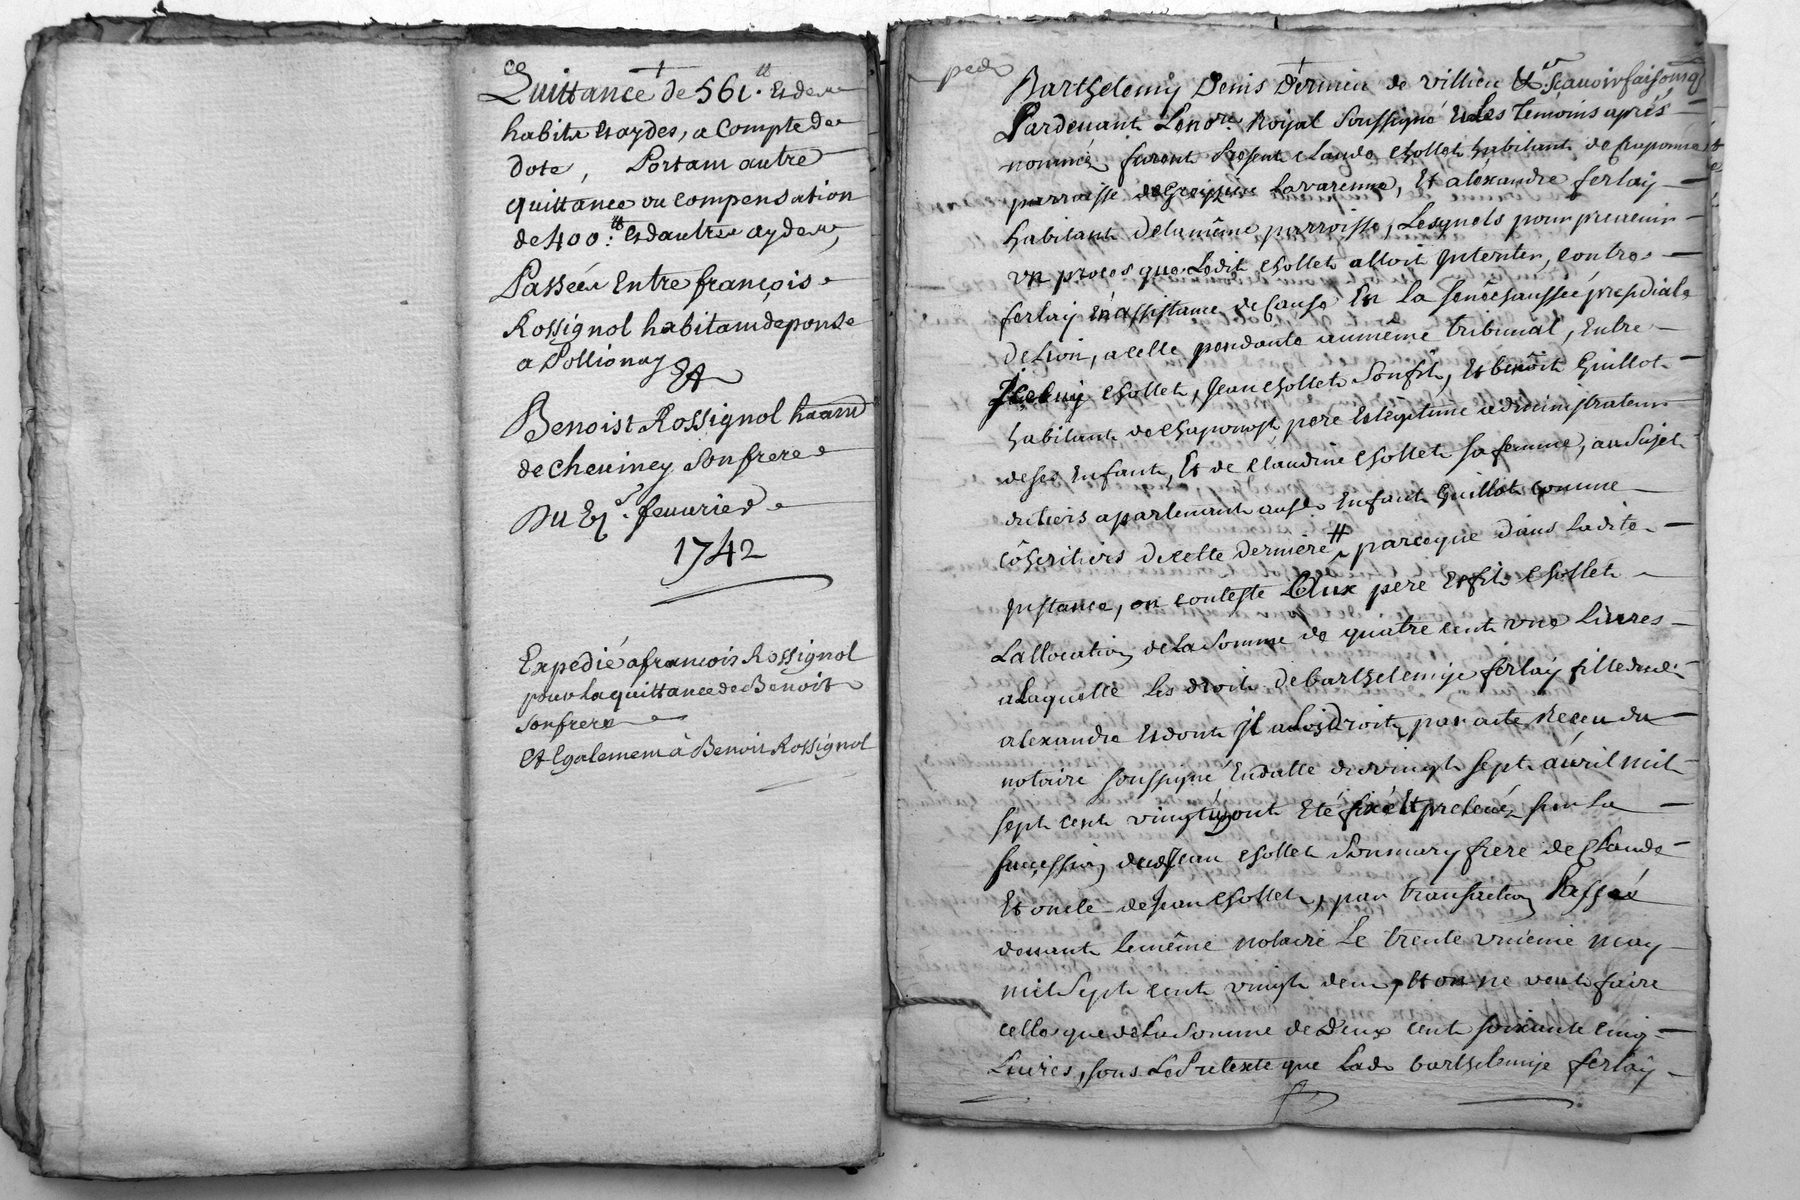 Quittance de 561.ᵗᵗ Et de
habits et aydes, a Compte de
dote, Portant autre
quittance ou compensation
de 400.ᵗᵗ et dautres aydes,
Passée Entre françois
Rossignol habitant deponse
a Pollionay Et
Benoist Rossignol haant
de cheuiney son frere
Du feuurier
1742
Expedié a francois Rossignol
pour la quittance de Benoit
son frere
Et Egalement à Benoit Rossignol
Barthelemy Denis Dervieu de villieu &c. Scauoir faisons q
Pardeuant Le noʳᵉ Royal Soussigné Et Les Temoins après
nommés furent Present Claude Chollet habitant de
parroisse de Grezieu Lavarenne, Et aléxandre ferlay
habitant de la même parroisse, Lesquels pour preuenir
un proces que Ledit Chollet alloit Intenter, contre
ferlay En assistance de Cause En La senéchaussée presidiale
de Lion, a celle pendante au même tribunal, Entre
Iceluy Chollet, Jean Chollet Son fils, Et benoît Guillot
habitant de Chaponost, pere Et légitime administrateur
de ses Enfant, Et de Claudine Chollet sa femme, au Sujet
du tiers apartenant ausd. Enfant Guillot comme
côheritiers de cette derniére parceque dans Ladite
Instance, on conteste à Eux pere Et fils Chollet
Lallocation de La Somme de quatre cent une Livres
a Laquelle Les droits de barthelemie ferlay fille dud.
alexandre Et dont il a Les droits, par acte Receu du
notaire soussigné En datte du vingt sept auril mil
sept cent vingt ont Eté fixé Et preleués sur La
succession dud. Jean Chollet Son mary frere de Claude
Et oncle de Jean Chollet, par transaction Passée
deuant le même notaire Le trente unieme may
mil Sept cent vingt deux, Et on ne veut faire
celle que de La Somme de Deux cent soixante cinq
Liures, sous Le Pretexte que Lad. barthelemie ferlay